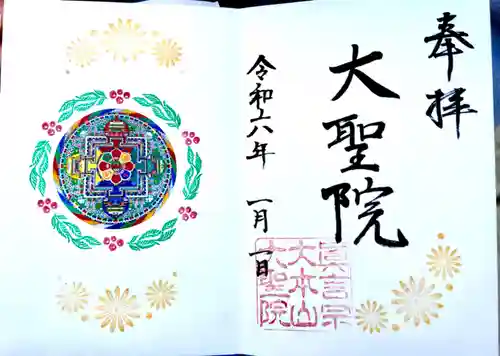 奉拝
大聖院
令和六年 一月 一日
真言宗
大本山
大聖院